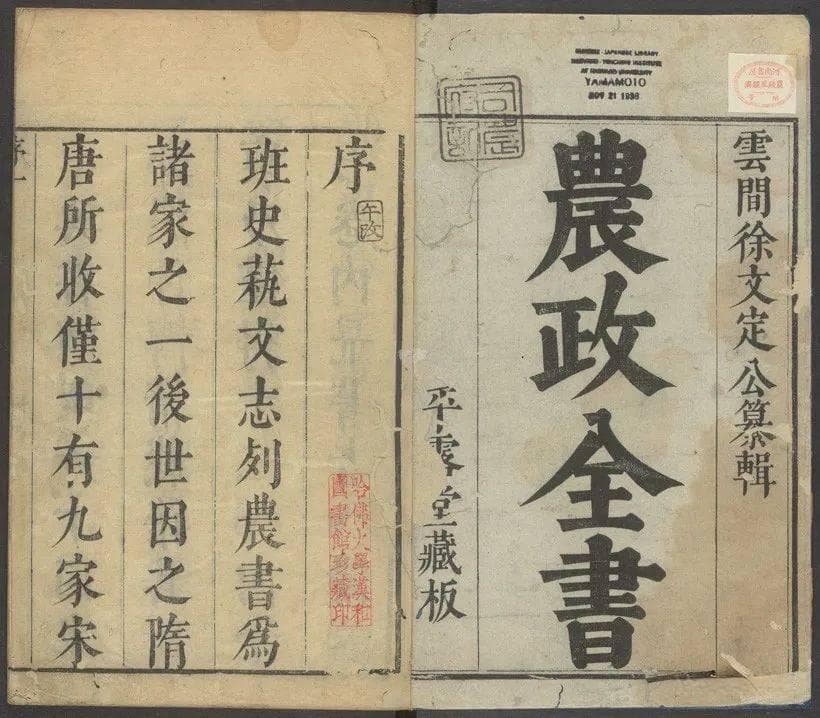 CHINESE-JAPANESE LIBRARY
HARVARD-YENCHING INSTITUTE
AT HARVARD UNIVERSITY
YAMAMOTO
NOV 21 1938
雲間徐文定公纂輯
農政全書
平露堂藏板
序
哈佛大學漢和
圖書館珍藏印
班史蓺文志列農書爲
諸家之一後世因之隋
唐所收僅十有九家宋
序一